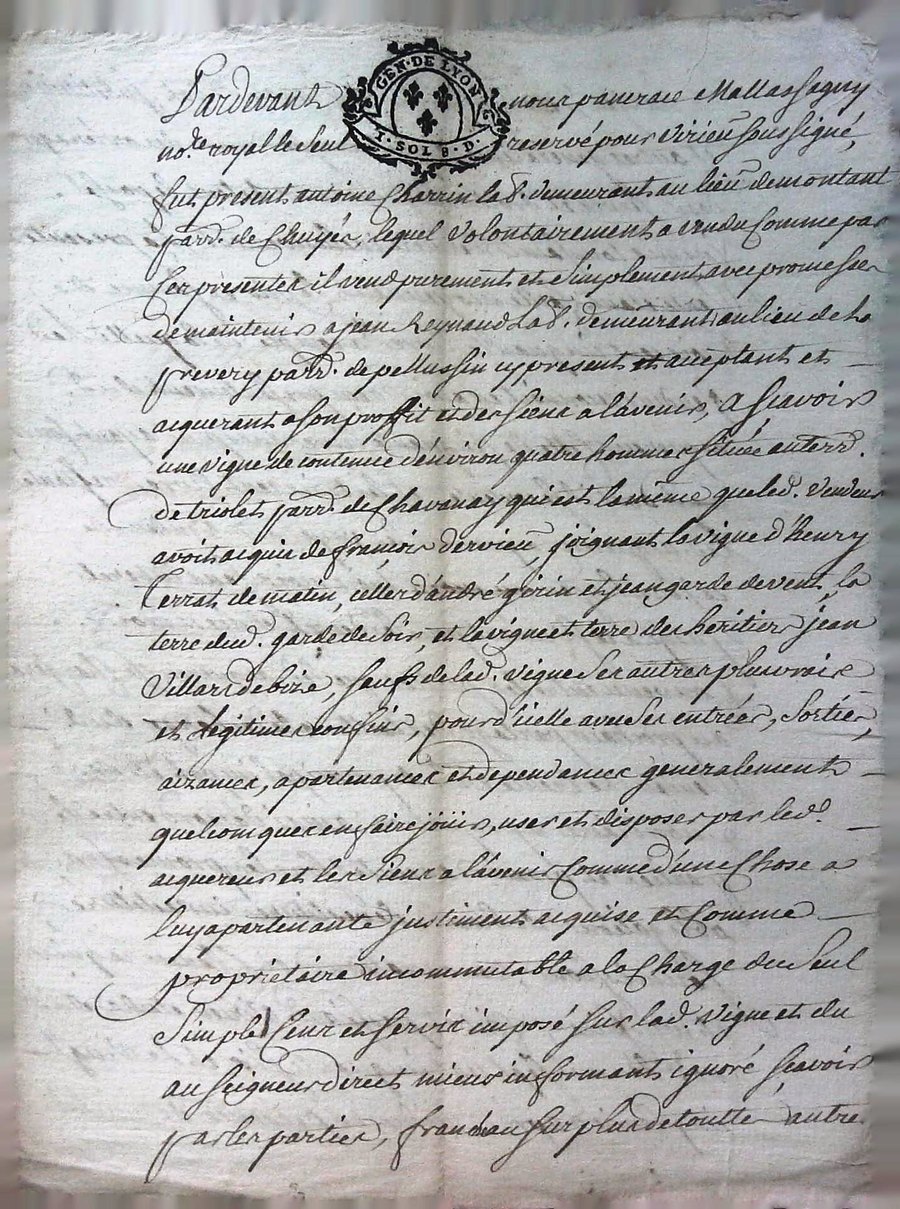 GEN · DE LYON
1 · SOL 8 · D ·
Pardevant nous pancrace Mallassagny
no.re royal le seul reservé pour Virieu soussigné,
fut present antoine Charrin lab.r demeurant au lieu de montant
parr. de Chuyer, lequel volontairement a vendu Comme par
Ces presentes il vend purement et simplement avec promesse
de maintenir a jean Reynaud lab.r demeurant au lieu de la
prevery parr. de pellussin cy present et acceptant et
aquerant a son proffit et des siens a l'avenir, a scavoir
une vigne de contenue d'environ quatre hommes située au terr.
de triolet parr. de Chavanay qui est la même que led. vendeur
avoit acquis de françois dervieu, joignant la vigne d'henry
Terrat de matin, celles d'andré girin et jean garde de vent, la
terre dud. garde de soir, et la vigne et terre des heritiers jean
Villard de bize, saufs de lad. vigne ses autres plus vrais
et legitimes confins, pour d'icelle avec ses entrées, sorties,
aizances, apartenances et dependances generalement
quelcomques en faire jouir, user et disposer par led.
aquereur et les siens a l'avenir Comme d'une Chose a
luy apartenante justement acquise et Comme
propriétaire incommutable a la Charge du seul
simple Cens et servis imposé sur lad. vigne et du
au seigneur direct mieux informants ignoré scavoir
par les parties, franche au surplus de toutte autre